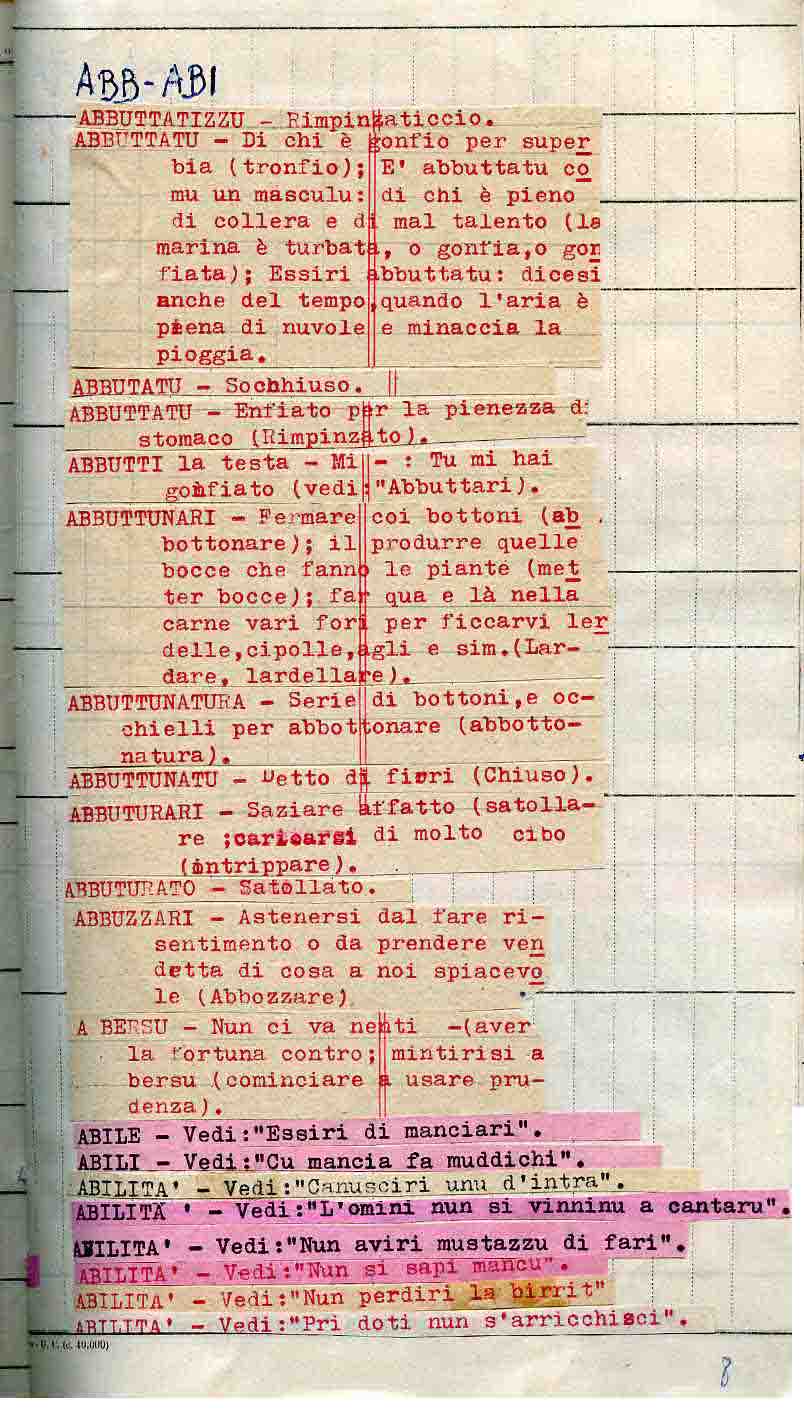 ABB-ABI
ABBUTTATIZZU - Rimpinzaticcio.
ABBUTTATU - Di chi è gonfio per super
bia (tronfio); E' abbuttatu co
mu un masculu: di chi è pieno
di collera e di mal talento (la
marina è turbata, o gonfia,o gon
fiata); Essiri abbuttatu: dicesi
anche del tempo,quando l'aria è
piena di nuvole e minaccia la
pioggia.
ABBUTATU - Sochhiuso.
ABBUTTATU - Enfiato per la pienezza di
stomaco (Rimpinzato).
ABBUTTI la testa - Mi - : Tu mi hai
gonfiato (vedi:"Abbuttari).
ABBUTTUNARI - Fermare coi bottoni (ab
bottonare); il produrre quelle
bocce che fanno le piante (met
ter bocce); far qua e là nella
carne vari fori per ficcarvi ler
delle,cipolle,agli e sim.(Lar-
dare, lardellare).
ABBUTTUNATURA - Serie di bottoni,e oc-
chielli per abbottonare (abbotto-
natura).
ABBUTTUNATU - Detto di fiori (Chiuso).
ABBUTURARI - Saziare affatto (satolla-
re ;caricarsi di molto cibo
(intrippare).
ABBUTURATO - Satollato.
ABBUZZARI - Astenersi dal fare ri-
sentimento o da prendere ven
detta di cosa a noi spiacevo
le (Abbozzare)
A BERSU - Nun ci va nenti -(aver
la fortuna contro; mintirisi a
bersu (cominciare a usare pru-
denza).
ABILE - Vedi:"Essiri di manciari".
ABILI - Vedi:"Cu mancia fa muddichi".
ABILITA' - Vedi:"Canusciri unu d'intra".
ABILITA ' - Vedi:"L'omini nun si vinninu a cantaru".
ABILITA' - Vedi:"Nun aviri mustazzu di fari".
ABILITA' - Vedi:"Nun si sapi mancu".
ABILITA' - Vedi:"Nun perdiri la birrit"
ABILITA' - Vedi:"Pri doti nun s'arricchisci".
8